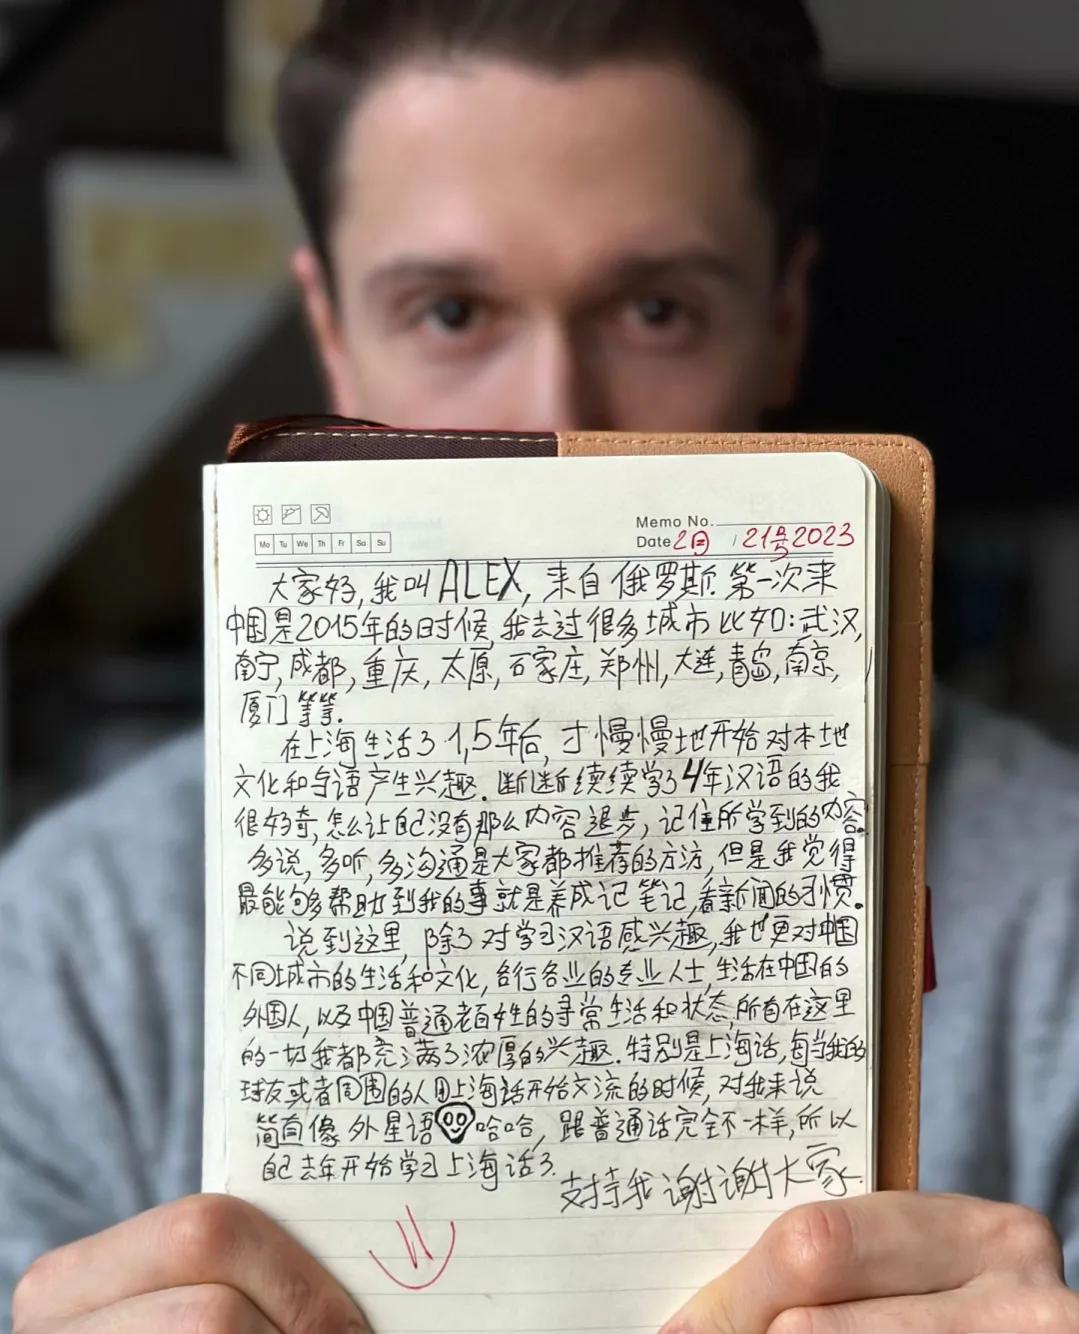 Memo No.
Mo Tu We Th Fr Sa Su
Date 2月 / 21号 2023
大家好,我叫ALEX,来自俄罗斯.第一次来
中国是2015年的时候,我去过很多城市比如:武汉,
南宁,成都,重庆,太原,石家庄,郑州,大连,青岛,南京,
厦门等等.
在上海生活了1,5年后,才慢慢地开始对本地
文化和与语产生兴趣.断断续续学了4年汉语的我
很好奇,怎么让自己没有那么内容退步,记住所学到的内容.
多说,多听,多沟通是大家都推荐的方法,但是我觉得
最能够帮助到我的事就是养成记笔记,看新闻的习惯.
说到这里,除了对学习汉语感兴趣,我也更对中国
不同城市的生活和文化,各行各业的专业人士,生活在中国的
外国人,以及中国普通老百姓的寻常生活和状态,所有在这里
的一切我都充满了浓厚的兴趣.特别是上海话,每当我的
球友或者周围的人用上海话开始交流的时候,对我来说
简直像外星语哈哈,跟普通话完全不一样,所以
自己去年开始学习上海话了.
支持我谢谢大家.